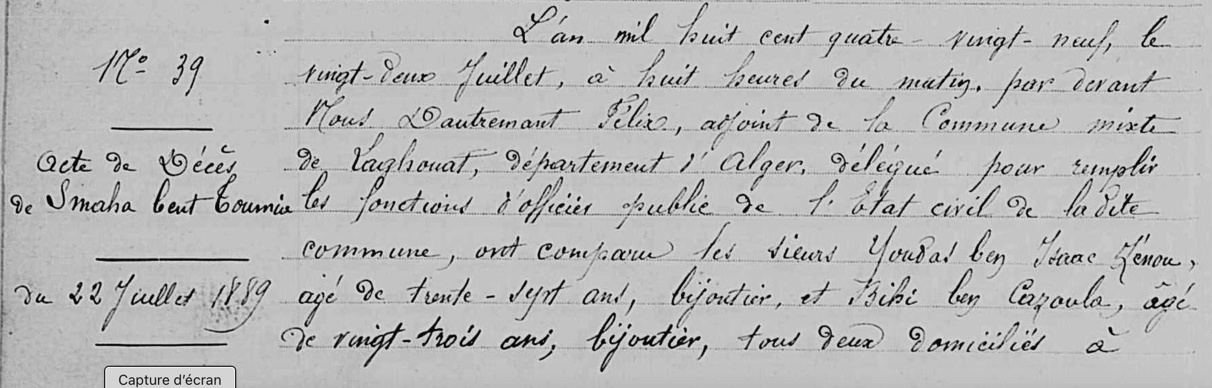 L'an mil huit cent quatre-vingt-neuf, le
N° 39
vingt-deux Juillet, à huit heures du matin, par devant
Nous Dautremant Félix, adjoint de la Commune mixte
Acte de Décès
de Laghouat, département d'Alger, délégué pour remplir
de Smaha bent Toumia
les fonctions d'officier public de l'Etat civil de la dite
commune, ont comparu les sieurs Youdas ben Isaac Zénou,
du 22 Juillet 1889
agé de trente-sept ans, bijoutier, et Bihi ben Cazoula, âgé
de vingt-trois ans, bijoutier, tous deux domiciliés à
Capture d'écran